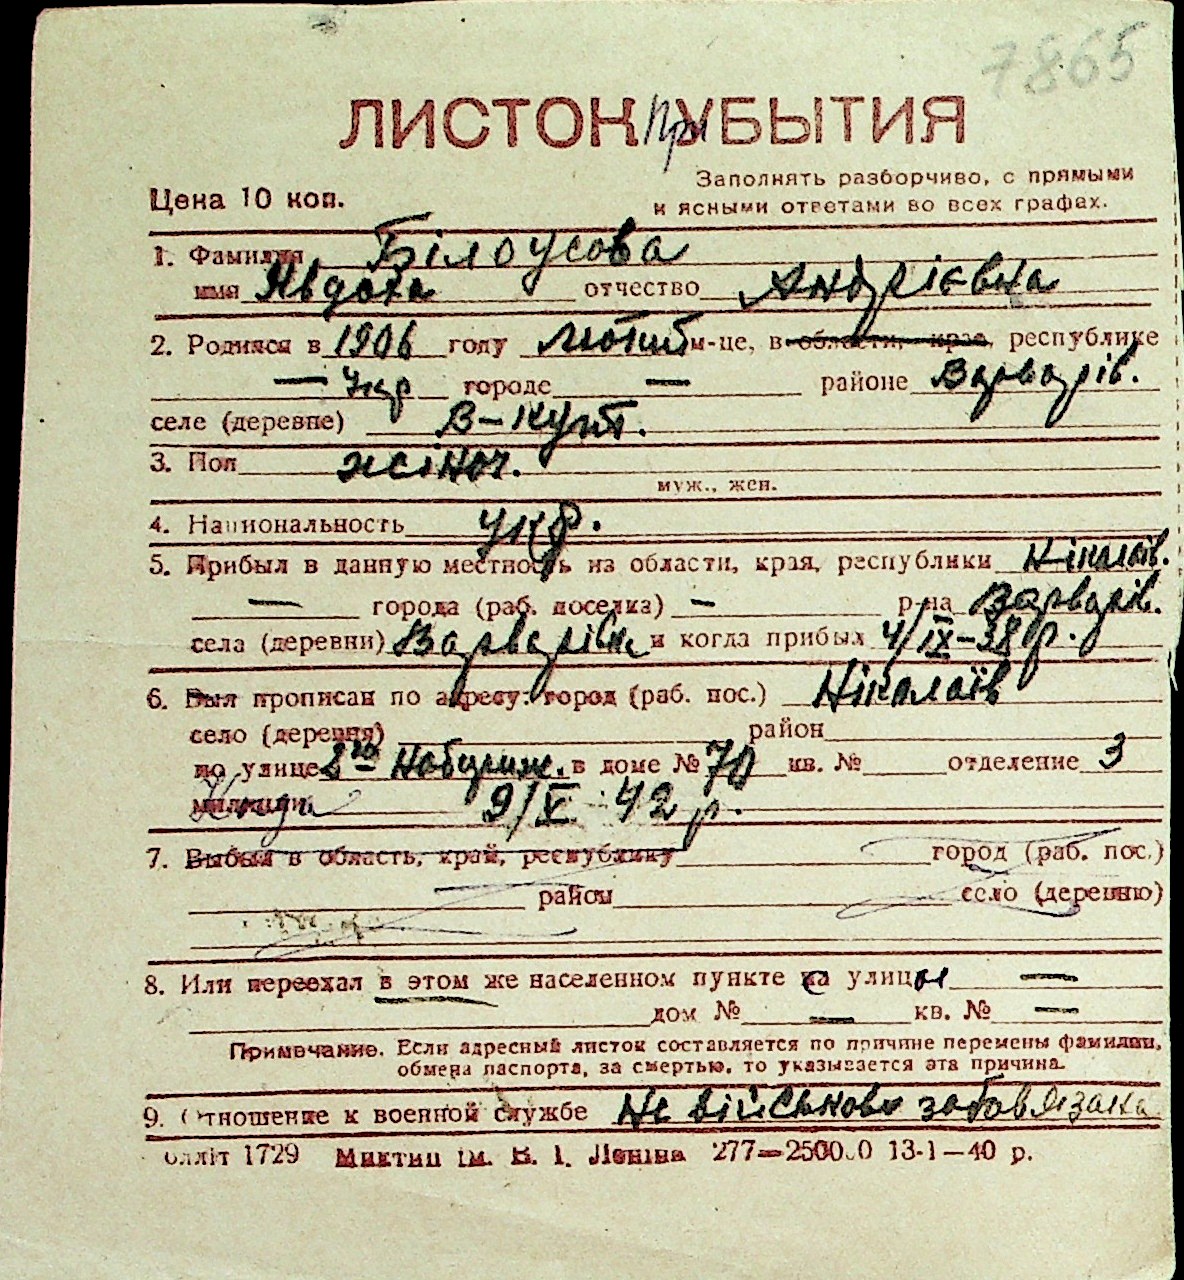 7865
ЛИСТОК при УБЫТИЯ
Цена 10 коп.
Заполнять разборчиво, с прямыми
и ясными ответами во всех графах.
1. Фамилия Білоусова
имя Явдоха отчество Андрієвна
2. Родился в 1906 году лютий м-це, в области, края, республике
— Укр городе — районе Варварів.
селе (деревне) В-Кут.
3. Пол жіноч.
муж., жен.
4. Национальность укр.
5. Прибыл в данную местность из области, края, республики Ніколаїв.
— города (раб. поселка) — р-на Варварів.
села (деревни) Варварівка и когда прибыл 4/IX-38 р.
6. Был прописан по адресу: город (раб. пос.) Ніколаїв
село (деревня) район
по улице 2га Набереж. в доме № 70 кв. № отделение 3
милиции 9/X 42 р.
7. Выбыл в область, край, республику город (раб. пос.)
район село (деревню)
8. Или переехал в этом же населенном пункте с улицы —
дом № — кв. № —
Примечание. Если адресный листок составляется по причине перемены фамилии,
обмена паспорта, за смертью, то указывается эта причина.
9. Отношение к военной службе Не військово забов'язана
оллiт 1729 Миктип ім. В. І. Леніна 277—250000 13-1—40 р.